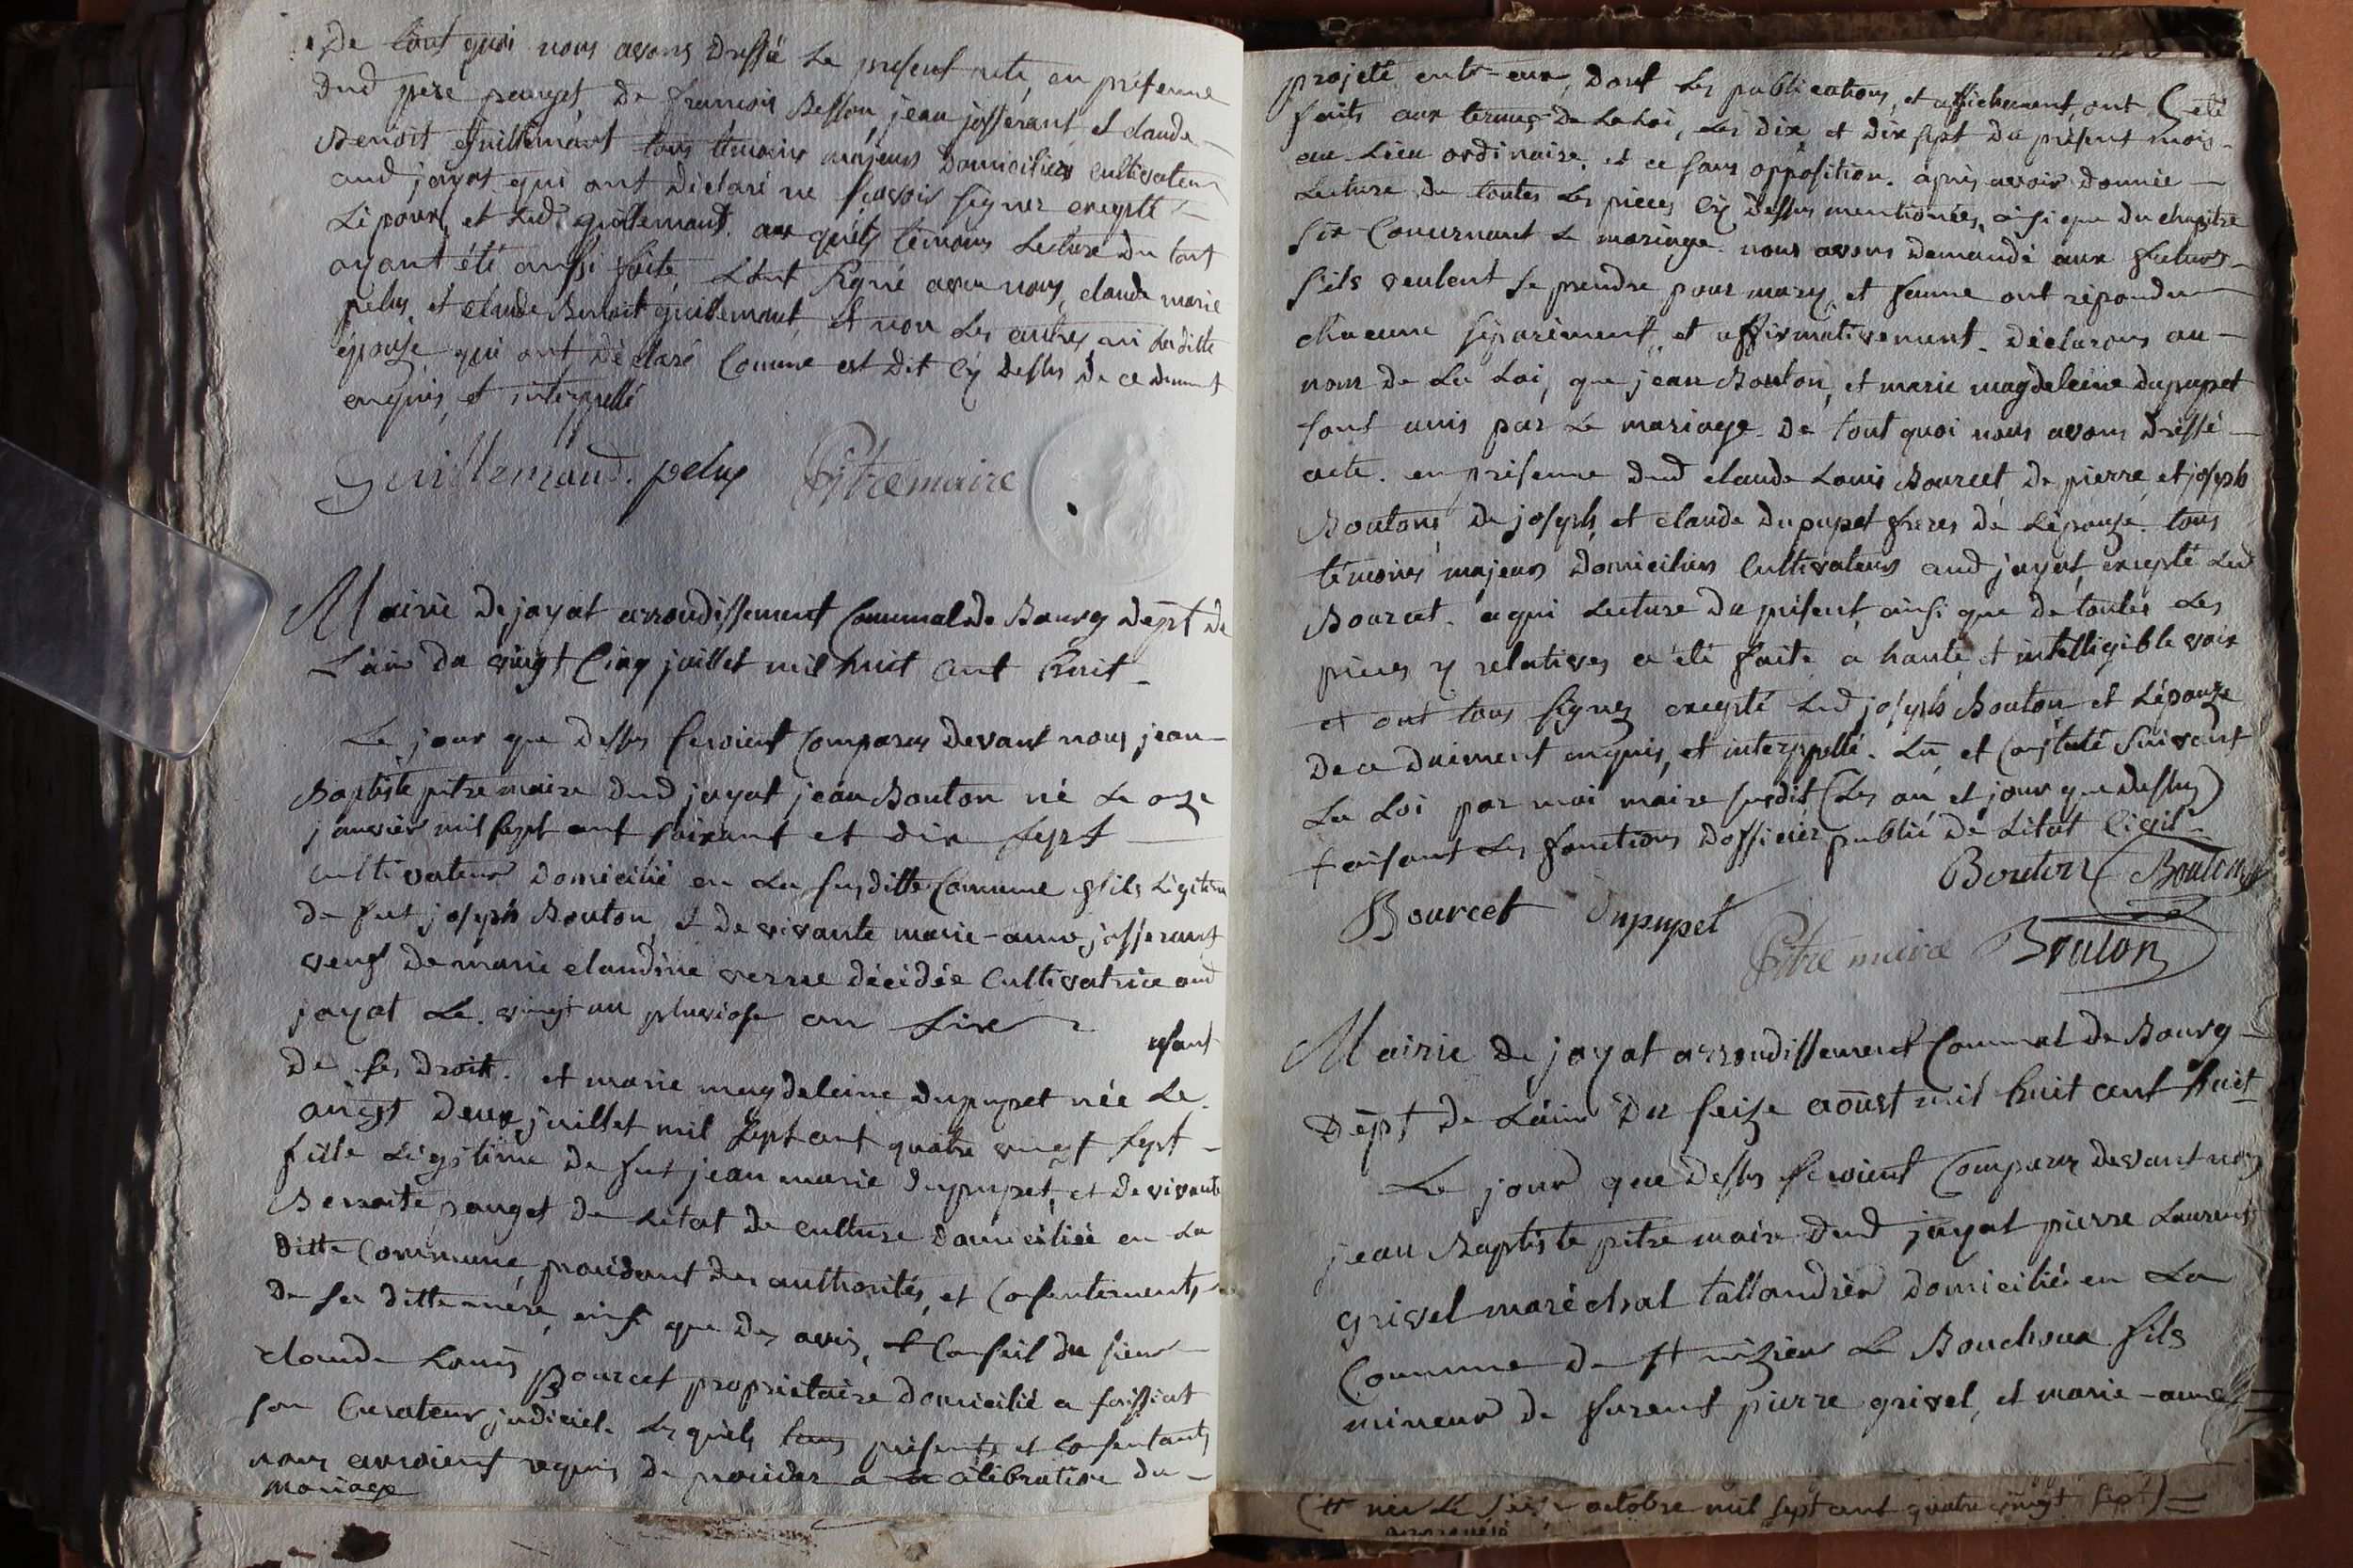 De tout quoi nous avons dressé le present acte, en présence
dud père pauget, de francois Besson, jean josserant, et claude
Benoit Guillemaut tous témoins majeurs domiciliés cultivateurs
aud jayat qui ont déclaré ne scavoir signer excepté
Lépoux, et led. guillemaut. aux quéls témoins Lecture du tout
ayant été aussi faite, L'ont signé avec nous, claude marie
pelus, et claude Benoit guillemaut, et non les autres ni laditte
épouse qui ont déclaré Comme est dit cÿ dessus de ce duement
enquis, et interppellé
Guillemaud. pelus Pitre maire
Mairie de jayat arrondissement Communal de Bourg dépt de
L'ain du vingt Cinq juillet mil huit cent huit
Le jour que dessus seroient Comparus devant nous jean
Baptiste pitre maire dud jayat jean Bouton né le onze
janvier mil sept cent soixant et dix sept
cultivateur domicilié en la susditte Commune fils Légitime
de fut joseph Bouton, et de vivante marie-anne josserant
veuf de marie claudine verne décédée Cultivatrice aud
jayat le vingt un pluviose an sixe
usant
de ses droit. et marie magdeleine dupupet née Le
vingt deux juillet mil sept cent quatre vingt sept
fille Légitime de fut jean marie dupupet, et de vivante
Benoite pauget de Létat de culture domiciliée en La
ditte Commune, procédant des authorités, et Consentements
de sa ditte mère, ainsi que des avis, et Conseil du sieur
claude Louis Bourcet propriétaire domicilié a foissiat
son Curateur judiciel. les quéls tous présents et Consentants
nous auroient requis de procéder a la célébration du
mariage
projeté entr-eux, dont les publications, et affichement, ont été
faits aux termes de la Loi, les dix et dix sept du présent mois
au Lieu ordinaire, et ce sans opposition. après avoir donnée
Lecture de toutes les pièces cÿ dessus mentionées, ainsi que du chapitre
six Concernant le mariage. nous avons demandé aux futurs
s'ils veulent se prendre pour mary, et femme ont répondu
chacune séparément, et affirmativement. déclarons au
nom de la Loi, que jean Bouton, et marie magdeleine dupupet
sont unis par le mariage. de tout quoi nous avons dréssé
acte. en présence dud claude Louis Bourcet, de pierre, et joseph
Boutons, de joseph, et claude dupupet frères de Lépouze. tous
témoins majeurs domiciliés Cultivateurs aud jayat, excepté led
Bourcet. a qui Lecture du présent, ainsi que de toutes les
pièces y relatives a été faite a haute, et intelligible voix
et ont tous signez excepté led joseph Bouton et Lépouze
de ce duement enquis, et interppellé. Lu, et Constaté suivant
La Loi par moi maire susdit (Les an et jour que dessus)
faisant les fonctions d'officier public de Létat Civil
Bouton Bouton
Bourcet Dupupet
Pitre maire Bouton
Mairie de jayat arrondissement Communal de Bourg
dépt de L'ain du seize aoust mil huit cent huit
Le jour que dessus seroient Comparus devant nous
jean Baptiste pitre maire dud jayat pierre Laurent
grivel maréchal tallandier domicilié en La
Commune de st nizier le Bouchoux fils
mineur de furent pierre grivel, et marie-anne
né le octobre mil sept cent quatre vingt sept)